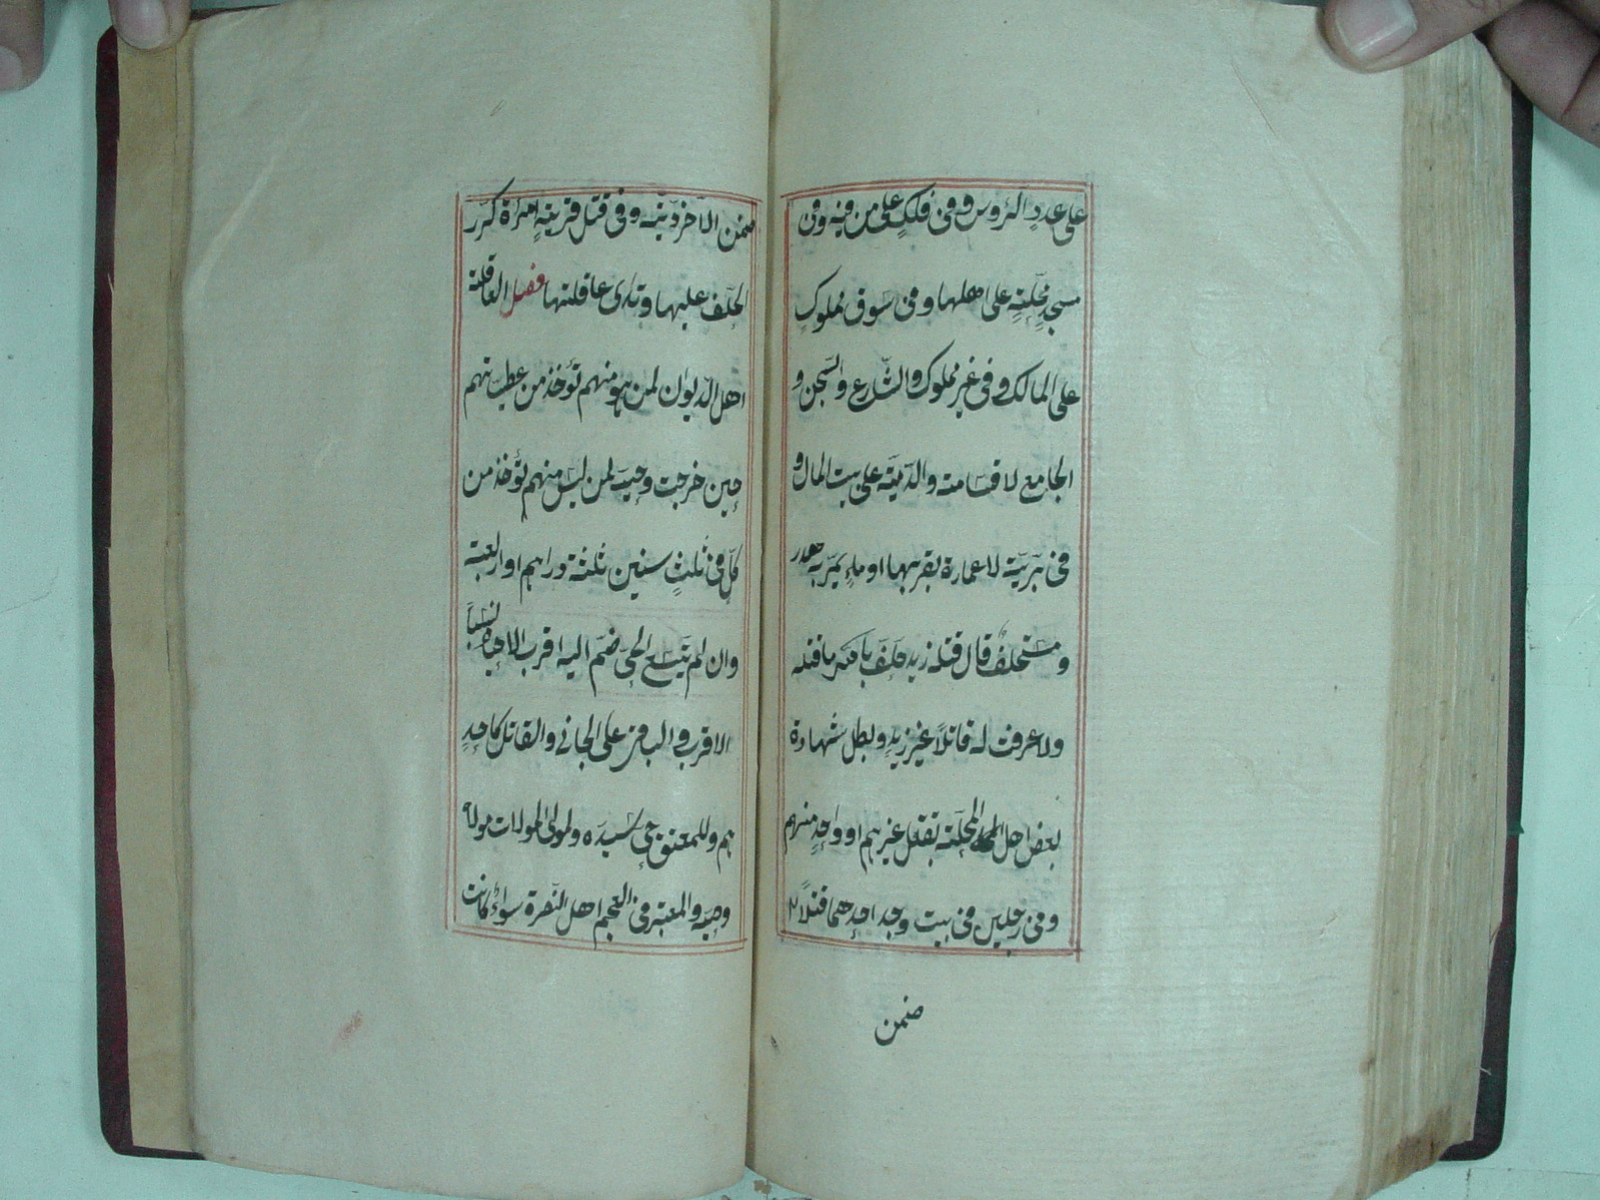 على عددِ الرؤس وفى فلكٍ على من فيه وفى
مسجدِ محلّةٍ على اهلها وفى سوق مملوكٍ
على المالك وفى غير مملوك والشّارع والسّجن و
الجامع لا قسامة والدّية على بيت المال و
فى بَرّيّة لا عمارة بقربها او ماءٍ يمرّ به هدر
ومستحلفٌ قال قتله زيد حلف باللّه ما قتله
ولا عرفت له قاتلاً غير زيدٍ وبطل شهادة
بعض اهل المحلّة بقتل غيرهم او واحدٍ منهم
وفى رجلين فى بيت وجد احدهما قتيلاً
ضمن
ضمن الآخر ديته وفى قتيل قريةِ امراة كرّر
الحلف عليها وتدى عاقلتها فصل العاقلة
اهل الدّيوان لمن هو منهم تؤخذ من عطيّاتهم
حين خرجت وحيّه لمن ليس منهم تؤخذ من
كلّ فى ثلثِ سنين ثلثة دراهم او اربعة
وان لم يتّسع الحىّ ضمّ اليه اقرب الاحياء نسباً
الاقرب والباقى على الجانى والقاتل كاحدِ
هم وللمعتق حىّ سيّده ولمولى الموالات مولاه
وحيّه والمعتبر فى العجم اهل النّصرة سواءٌ كانت